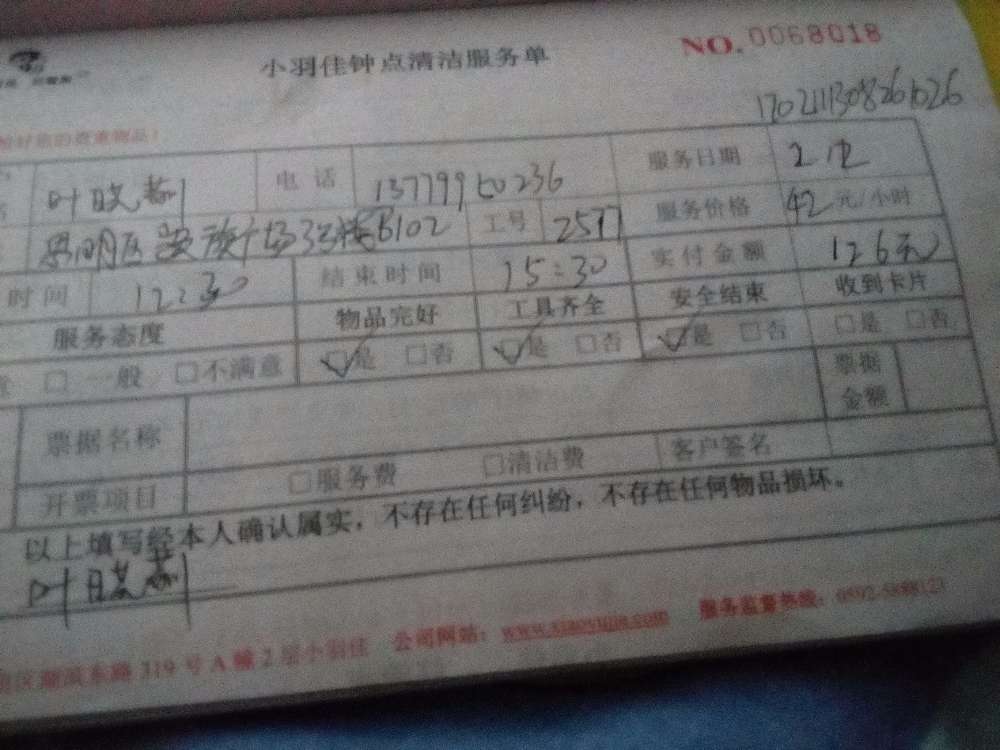 小羽佳钟点清洁服务单
NO.0068018
1702111308261026
好您的贵重物品！
叶晓莉 电话 13779950236 服务日期 2.12
思明区 广场3号楼B102 工号 2577 服务价格 42元/小时
时间 12:30 结束时间 15:30 实付金额 126元
服务态度 物品完好 工具齐全 安全结束 收到卡片
□一般 □不满意 □是 □否 □是 □否 □是 □否 □是 □否
票据名称 票据金额
开票项目 □服务费 □清洁费 客户签名
以上填写经本人确认属实，不存在任何纠纷，不存在任何物品损坏。
叶晓莉
区湖滨东路319号A幢2层小羽佳 公司网站：www.xiaoyujia.com 服务监督热线：0592-5888123